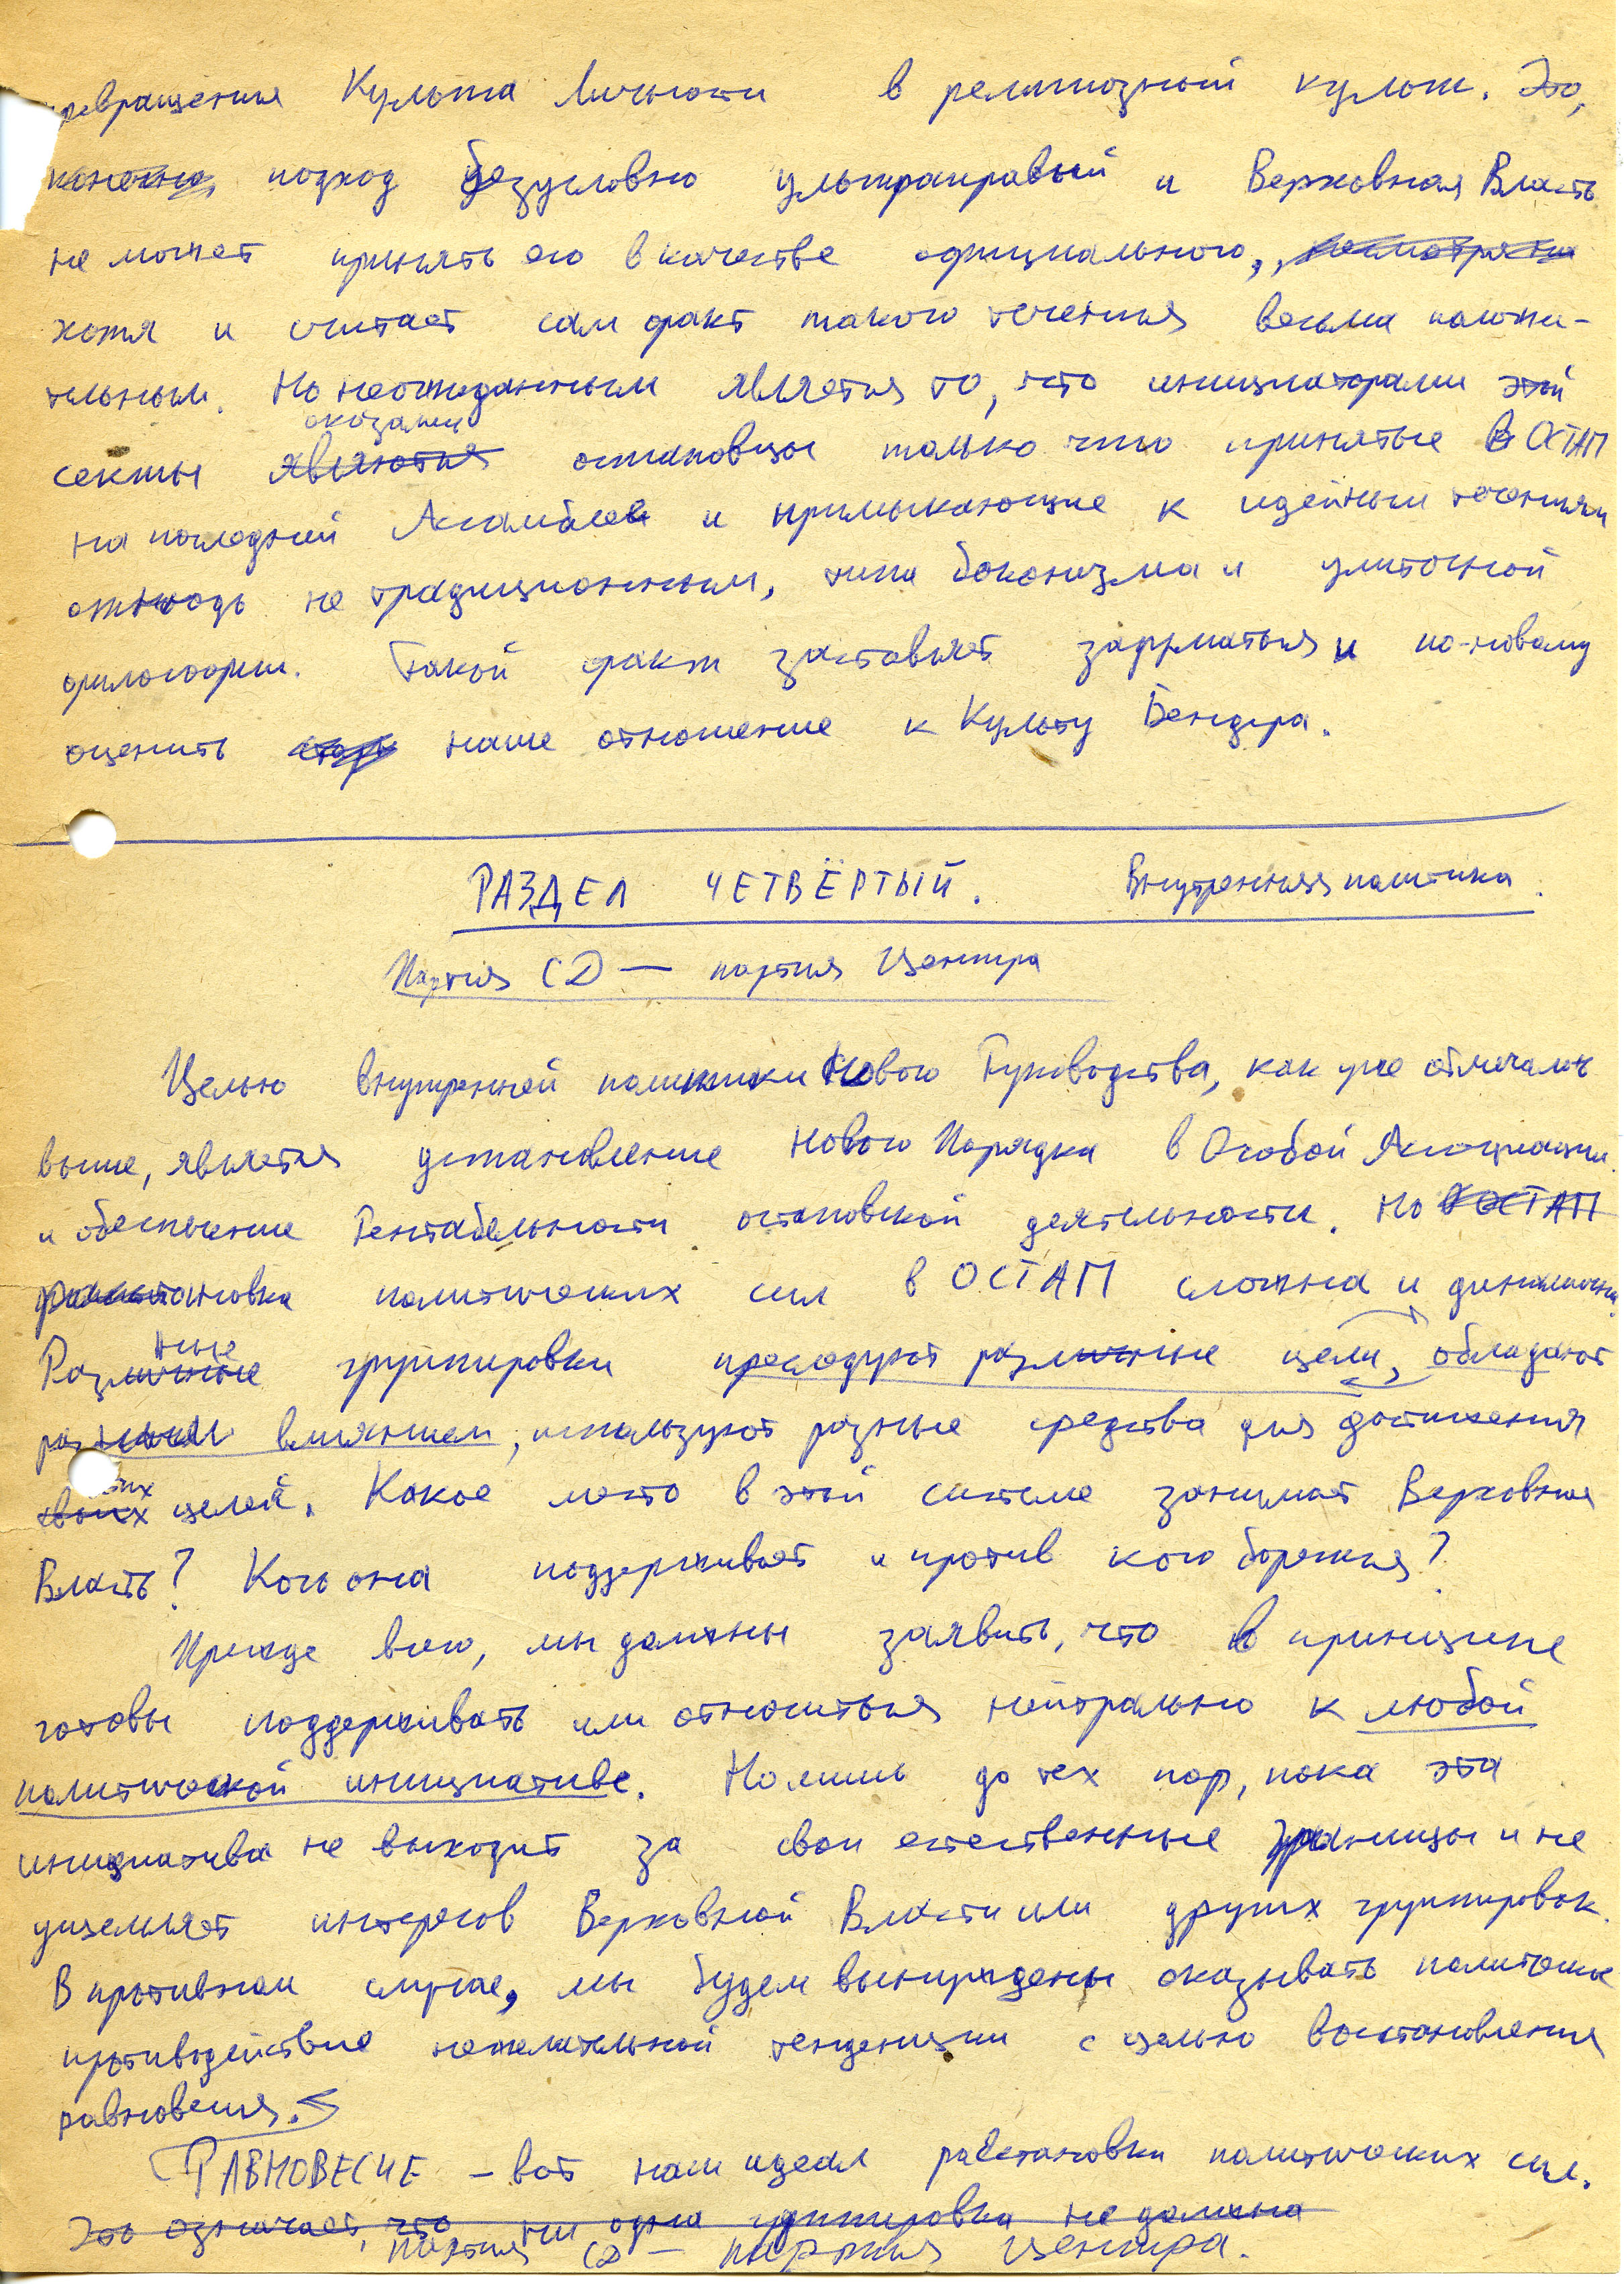 превращения Культа Личности в религиозный культ. Это,
конечно, подход безусловно ультраправый и Верховная Власть
не может принять его в качестве официального, несмотря на
хотя и считает сам факт такого течения весьма положи-
тельным. Но неожиданным является то, что инициаторами этой
оказались
секты являются остаповцы только что принятые в ОСТАП
на последней Ассамблее и примыкающие к идейным течениям
отнюдь не традиционным, типа боконизма и улиточной
философии. Такой факт заставляет задуматься и по-новому
оценить наше отношение к Культу Бендера.
РАЗДЕЛ ЧЕТВЁРТЫЙ. Внутренняя политика.
Партия СД — партия Центра
Целью внутренней политики Нового Руководства, как уже отмечалось
выше, является установление Нового Порядка в Особой Ассоциации
и обеспечение Рентабельности остаповской деятельности. Но в ОСТАП
расстановка политических сил в ОСТАП сложна и динамична.
ные
Различные группировки преследуют различные цели, обладают
разным влиянием, используют разные средства для достижения
этих
своих целей. Какое место в этой системе занимает Верховная
Власть? Кого она поддерживает и против кого борется?
Прежде всего, мы должны заявить, что в принципе
готовы поддерживать или относиться нейтрально к любой
политической инициативе. Но лишь до тех пор, пока эта
инициатива не выходит за свои естественные границы и не
ущемляет интересов Верховной Власти или других группировок.
В противном случае, мы будем вынуждены оказывать политическое
противодействие нежелательной тенденции с целью восстановления
равновесия.
РАВНОВЕСИЕ – вот наш идеал расстановки политических сил.
Это означает, что ни одна группировка не должна
партия СД — партия Центра.